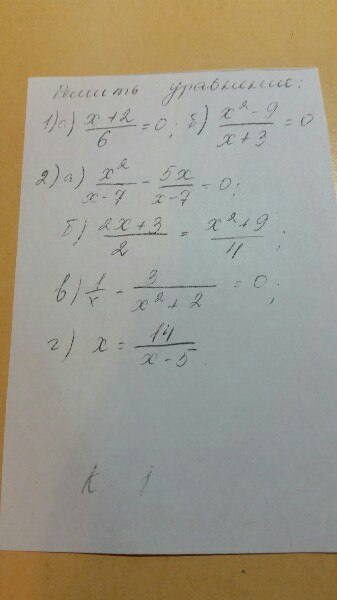 Решить уравнение:
1) а) (x+2)/6 = 0; б) (x²-9)/(x+3) = 0
2) а) x²/(x-7) - 5x/(x-7) = 0;
б) (2x+3)/2 = (x²+9)/4;
в) 1/x - 3/(x²+2) = 0;
г) x = 14/(x-5)